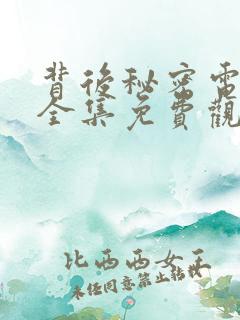 背後秘密電
全集免費觀
比西西女王
未經同意禁止轉載